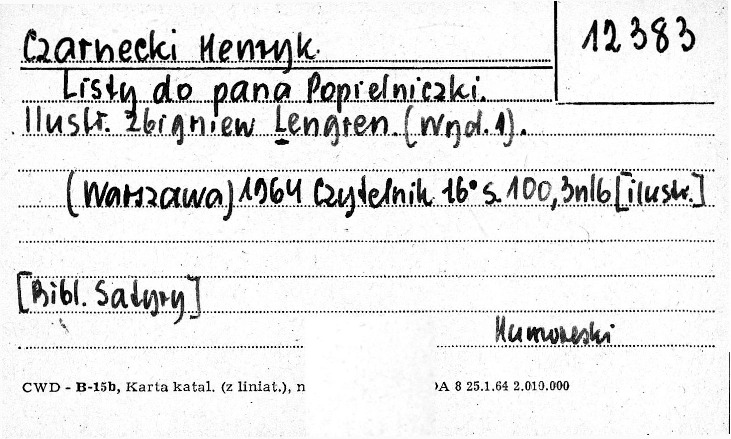 Czarnecki Henryk.
12383
Listy do pana Popielniczki.
Ilustr. Zbigniew Lengren. (Wyd. 1).
(Warszawa) 1964 Czytelnik 16° s. 100, 3nlb [ilustr.]
[Bibl. Satyry]
Humoreski
CWD - B-15b, Karta katal. (z liniat.), n
A 8 25.1.64 2.010.000